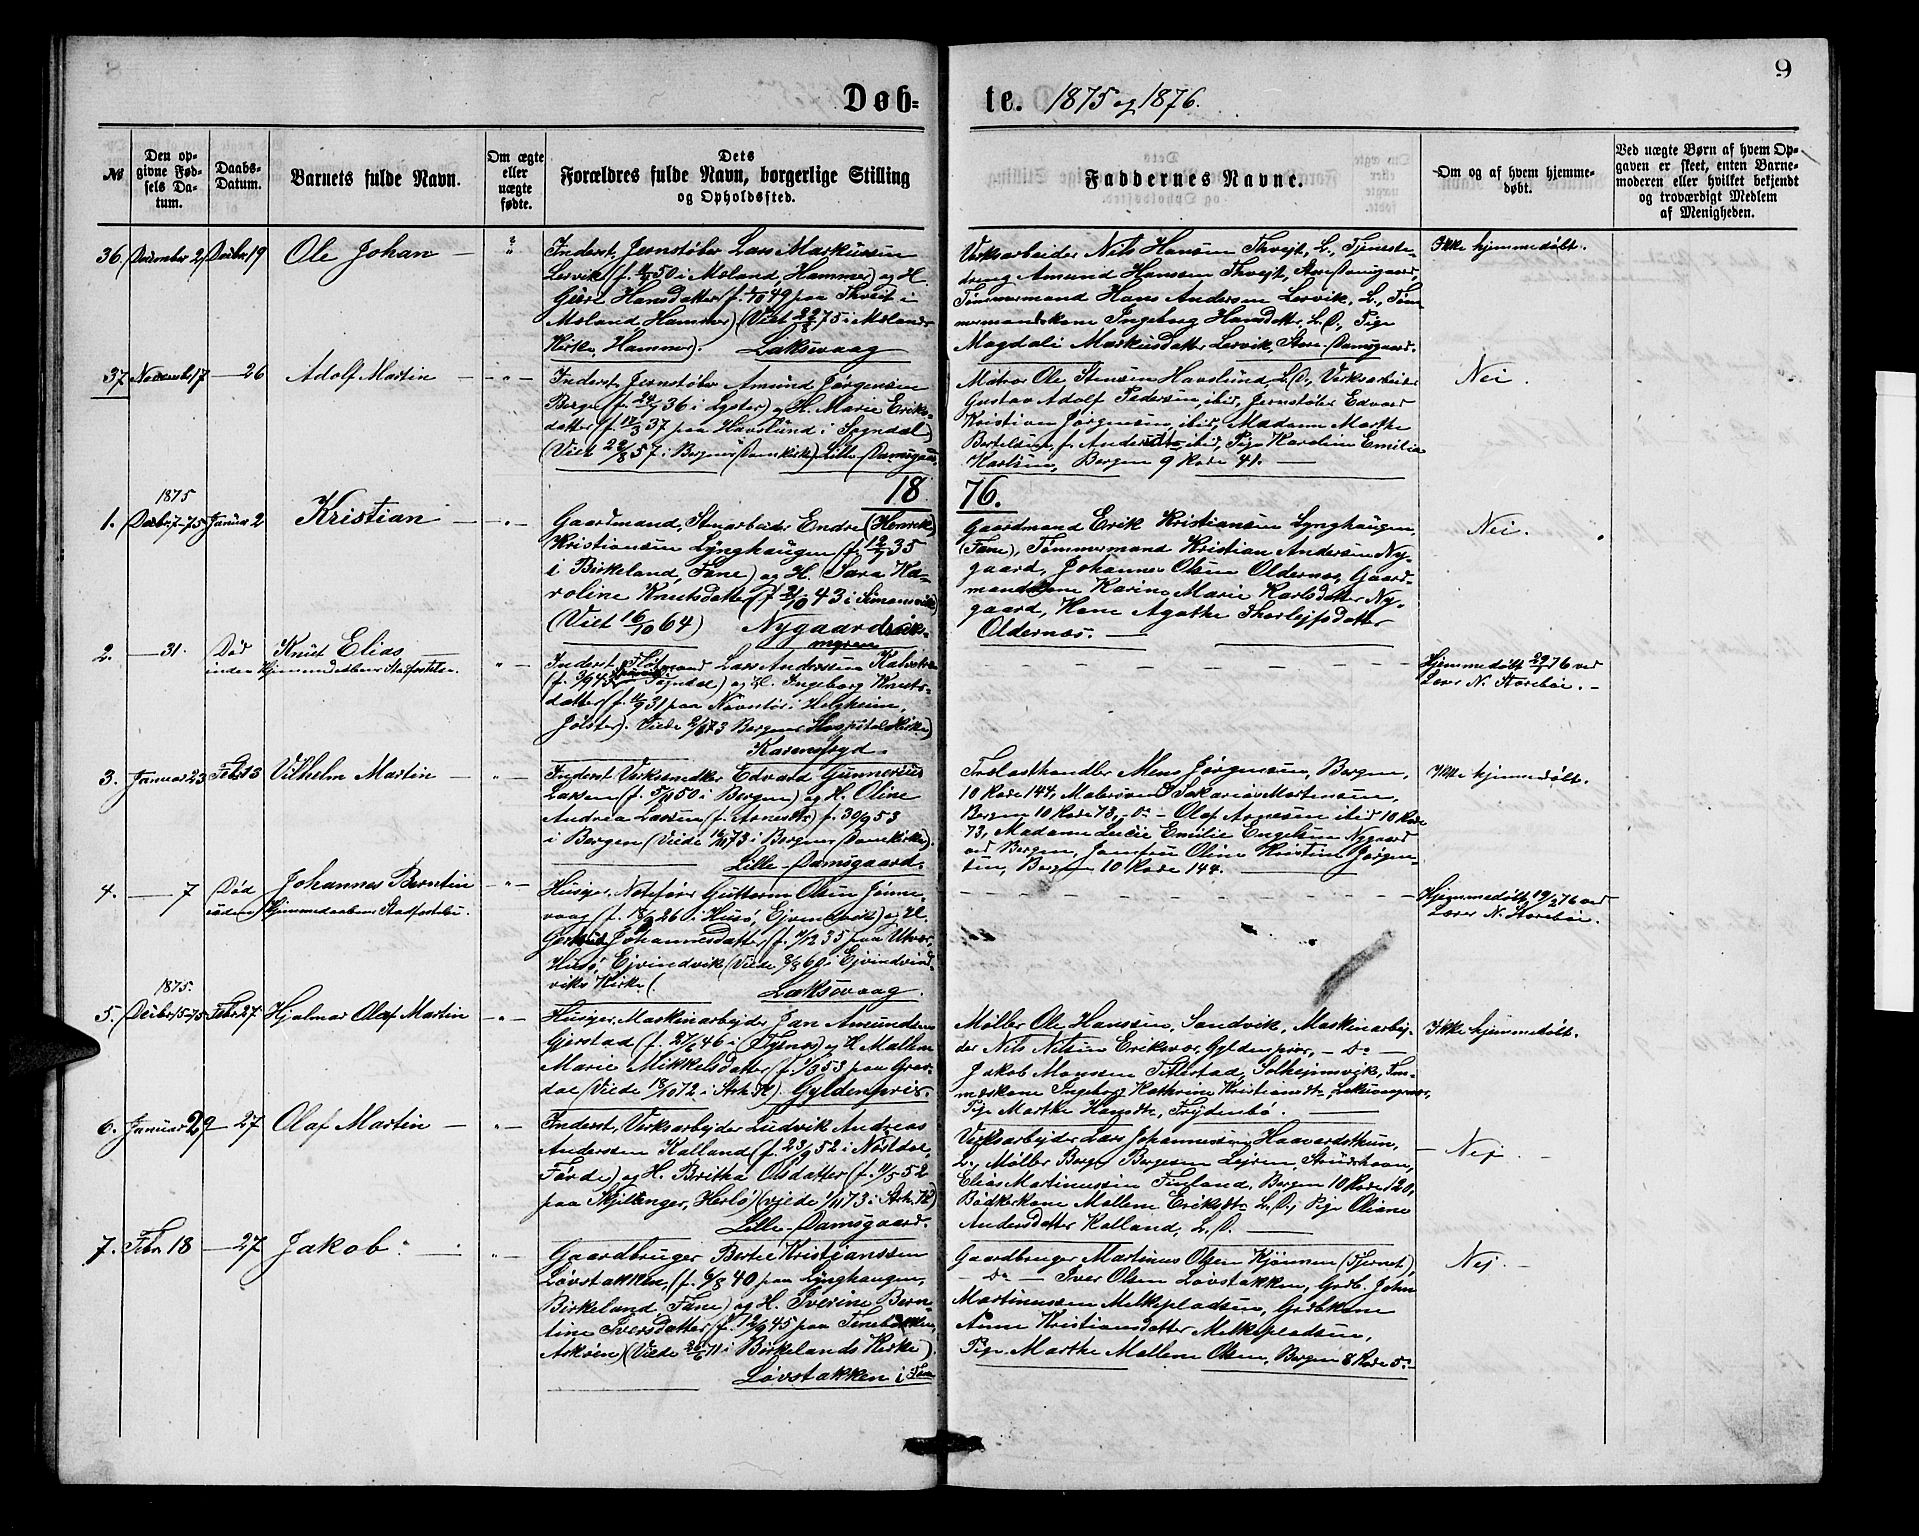 9
Døb-
te. 1875 og 1876.
№
Den op-
givne Fød-
sels Da-
tum.
Daabs-
Datum.
Barnets fulde Navn.
Om ægte
eller
uægte
fødte.
Dets
Forældres fulde Navn, borgerlige Stilling
og Opholdssted.
Faddernes Navne.
Om og af hvem hjemme-
døbt.
Ved uægte Børn af hvem Op-
gaven er skeet, enten Barne-
moderen eller hvilket bekjendt
og troværdigt Medlem
af Menigheden.
36. December 2 Decbr. 19 Ole Johan — "
Inderst, Jernstøber Lars Markussen
Lervik (f. 50 i Moland, Hammer) og H.
Hansdatter (f. 49 paa Tkveit i
Moland, Hammer) (Viet 22/8 75 i Molands
Kirke, Hammer). Laksevaag
Verksarbeider Nils Hansen Thvejt, L., Tjeneste-
dreng Amund Hanssen Thvejt, Store Damsgaard,
Tømmermand Hans Andersen Lervik, L., Tøm-
mermandskone Ingeborg Hansdatter, L. D., Pige
Magdali Markusdatter Lervik, Store-Damsgaard.
Ikke hjemmedøbt.
37 Novembr 17 — 26 Adolf Martin — " —
Inderst, Jernstøber Amund Jørgensen
Berge (f. 24/7 36 i Lyster) og H. Marie Eriks-
datter (f. 18/3 37 paa Havslund i Sogndal)
(Viet 22/8 57 i Bergens Domkirk) Lille-Damsgaard.
Matros Ole Stensen Havslund, L. D., Verksarbeider
Gustav Adolf Pedersen, ibid, Jernstøber Edvard
Kristian Jørgensen, ibid, Madame Marthe
Bertelsen f. Andersdtr ibid, Pige Karoline Emilia
Karlsen, Bergen 9 Rode 41. —
Nei.
18 76.
1. 1875 Decbr 7-75 Januar 2 Kristian — " —
Gaardmand, Stenarbeider Endre (Henrik)
Kristiansen Lynghaugen (f. 12/7 35
i Birkeland, Fane) og H. Sara Ka-
roline Knutsdatter (f. 43 i Simonsvik)
(Viet 16/10 64) Nygaardsvik-
myren
Gaardmand Erik Kristiansen Lynghaugen,
(Fane), Tømmermand Kristian Andersen Ny-
gaard, Johannes Olsen Oldernes, Gaard-
mandskone Karine Marie Karlsdatter Ny-
gaard, Kone Agathe Thorlejfsdatter
Oldernes. —
Nei.
2. — 31. Død Knut Elias
inden Hjemmedaabens Stadfæstelse. " —
Inderst, Lars Andersen
(f. 45 Sogndal) og H. Ingeborg Knuts-
datter (f. 31 paa i Helgheim,
Jølster). Viede 2/ 73 Bergens Hospitals Kirke)
Hjemmedøbt 76 ved
Lærer N. Storebø. —
3. Januar 23 Febr 13 Vilhelm Martin — " —
Inderst, Verksmedker Edvard Gunnerius
Larsen (f. 50 i Bergen) og H. Oline
Andrea Larsen (f. Arnesdtr) f. 30/9 53
i Bergen (Viede 73 i Bergens Domkirke).
Lille-Damsgaard.
Trælasthandler Mons Jørgensen, Bergen,
10 Rode 144, Malersvend Sakarias Martensen,
Bergen 10 Rode 73, — D° — Olaf Arnesen ibid 10 Rode
73, Madame Lucie Emilie Engelsen Nygaard
ved Bergen, Jomfru Oline Kristine Jørgen-
sen, Bergen 10 Rode 144. —
Ikke hjemmedøbt.
4. — 7 Død Johannes Berntin — " —
inden Hjemmedaabens Stadfæstelse.
Husejer, Notefører Guttorm Olsen
vaag (f. 18/ 26 i Husø, Ejvindvik) og H.
Gertrud Johannesdatter (f. 35 paa Utvær,
Husø, Ejvindvik (Viede 8/8 60 i Ejvindvind-
viks Kirke ( Laksevaag.
Hjemmedøbt 19/ 76 ved
Lærer N. Storebø.
5. 1875. Decbr 15-75 Febr. 27 Hjalmar Olaf Martin — " —
Husejer, Maskinarbejder Jan Amundsen
Gjerstad (f. 27/6 46 i Tysnes) og H. Mallene
Marie Mikkelsdatter (f. 53 paa
dal (Viede 18/10 72 i Aarh. K) Gyldenpris.
Møller Ole Hanssen, Sandvik, Maskinarbej-
der Nils Nilsen Eriksvær, Gyldenpris, — D° —
Jakob Monssen Titlestad, Solhejmsvik, Tøm-
mskone Ingeborg Kathrine Kristiansdtr Laksevaagnæs,
Pige Marthe Hansdtr, Frydenbø. —
Ikke hjemmedøbt.
6. Januar 29 — 27 Olaf Martin — " —
Inderst, Verksarbejder Ludvik Andreas
Anderssen Kalland (f. 23/9 52 i Nøstdal,
Førde) og H. Britha Olsdatter (f. 11/5 52
paa Skjellanger, Herlø) (viede 73 i Aarh. K)
Lille-Damsgaard.
Verksarbejder Lars Johannessen Haavardsthun,
L., Møller Berge Bergesen Lejren, Strudshavn,
Elias Martinussen Finland, Bergen 10 Rode 120,
Bødkerkone Mallene Eriksdtr L. D., Pige Oliane
Andersdatter Kalland, L. D. —
— Nej. —
7. Febr. 18 — 27 Jakob. — " —
Gaardbruger Berte Kristianssen
Løvstakken, (f. 6/8 40 paa Lynghaugen,
Birkeland, Fane) og H. Iverine Bern-
tine Iversdatter (f. 12/9 45 paa
Askøen) (Viede 71 i Birkelands Kirke)
Løvstakken i Fane
Gaardbruger Martinus Olsen Kjønnen (Tjernet),
— D° — Iver Olsen Løvstakken, Grdb. John
Martinussen Melkepladsen, Grdbkone
Anne Kristiansdatter Melkepladsen,
Pige Marthe Mallene Olsen, Bergen 8 Rode 5.
Nej. —